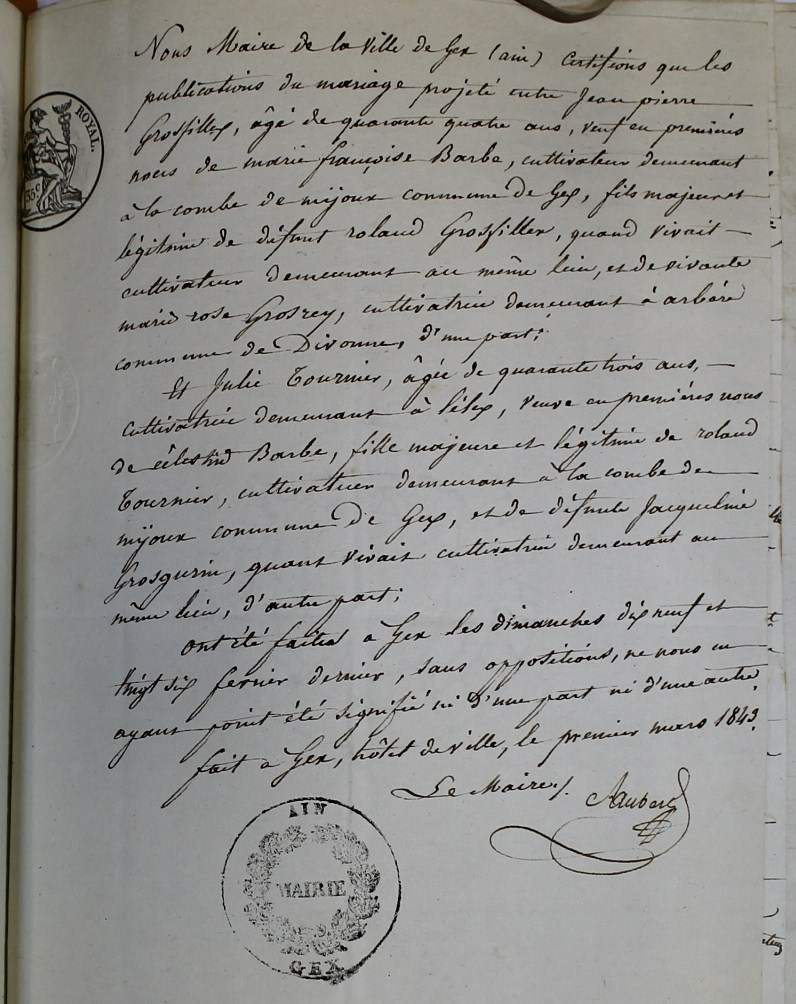 Nous Maire de la ville de Gex (ain) Certifions que les
publications du mariage projeté entre Jean pierre
Grosfillex, âgé de quarante quatre ans, veuf en premières
noces de marie françoise Barbe, cultivateur demeurant
à la combe de mijoux commune de Gex, fils majeur et
légitime de défunt roland Grosfillex, quand vivait
cultivateur demeurant au même lieu, et de vivante
marie rose Grosrey, cultivatrice demeurant à arbére
commune de Divonne, d'une part;
Et Julie Tournier, âgée de quarante trois ans,
cultivatrice demeurant à Lélex, veuve en premières noces
de célestin Barbe, fille majeure et légitime de roland
Tournier, cultivateur demeurant à la combe de
mijoux commune de Gex, et de défunte Jacqueline
Grosgurin, quant vivait cultivatrice demeurant au
même lieu, d'autre part;
ont été faites à Gex les dimanches dix neuf et
vingt six fevrier dernier, sans oppositions, ne nous en
ayant point été signifié ni d'une part ni d'une autre.
fait à Gex, hôtel de ville, le premier mars 1843.
Le Maire,
ROYAL.
35c
AIN
MAIRIE
GEX